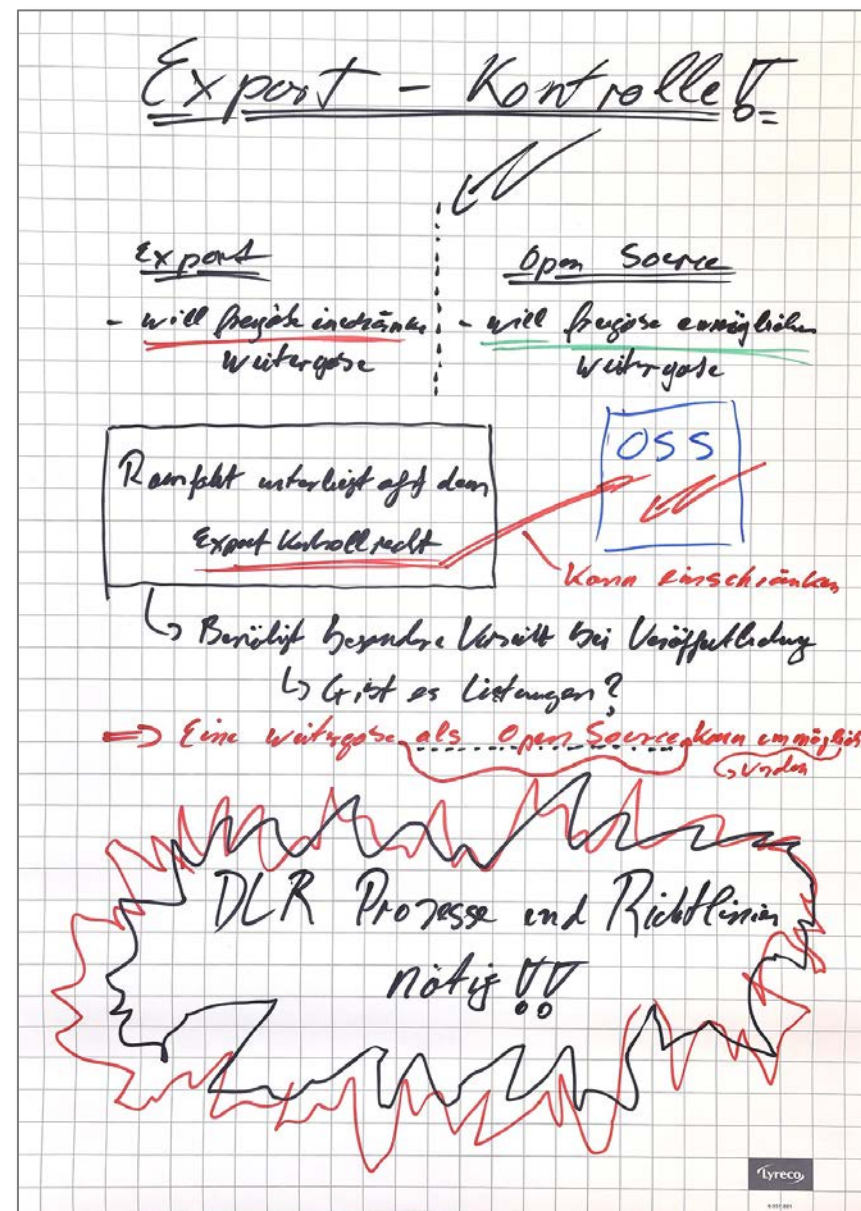 Export - Kontrolle!
Export
- will freigabe
Weitergabe
Open Source
- will freigabe ermöglichen
Weitergabe
Raumfahrt unterliegt oft dem
Export Kontrollrecht
OSS
Kann einschränken
↳ Benötigt besondere Vorsicht bei Veröffentlichung
↳ Gibt es Listungen?
⇒ Eine Weitergabe als Open Source kann unmöglich
↳ werden
DLR Prozesse und Richtlinien
nötig!!
Lyreco